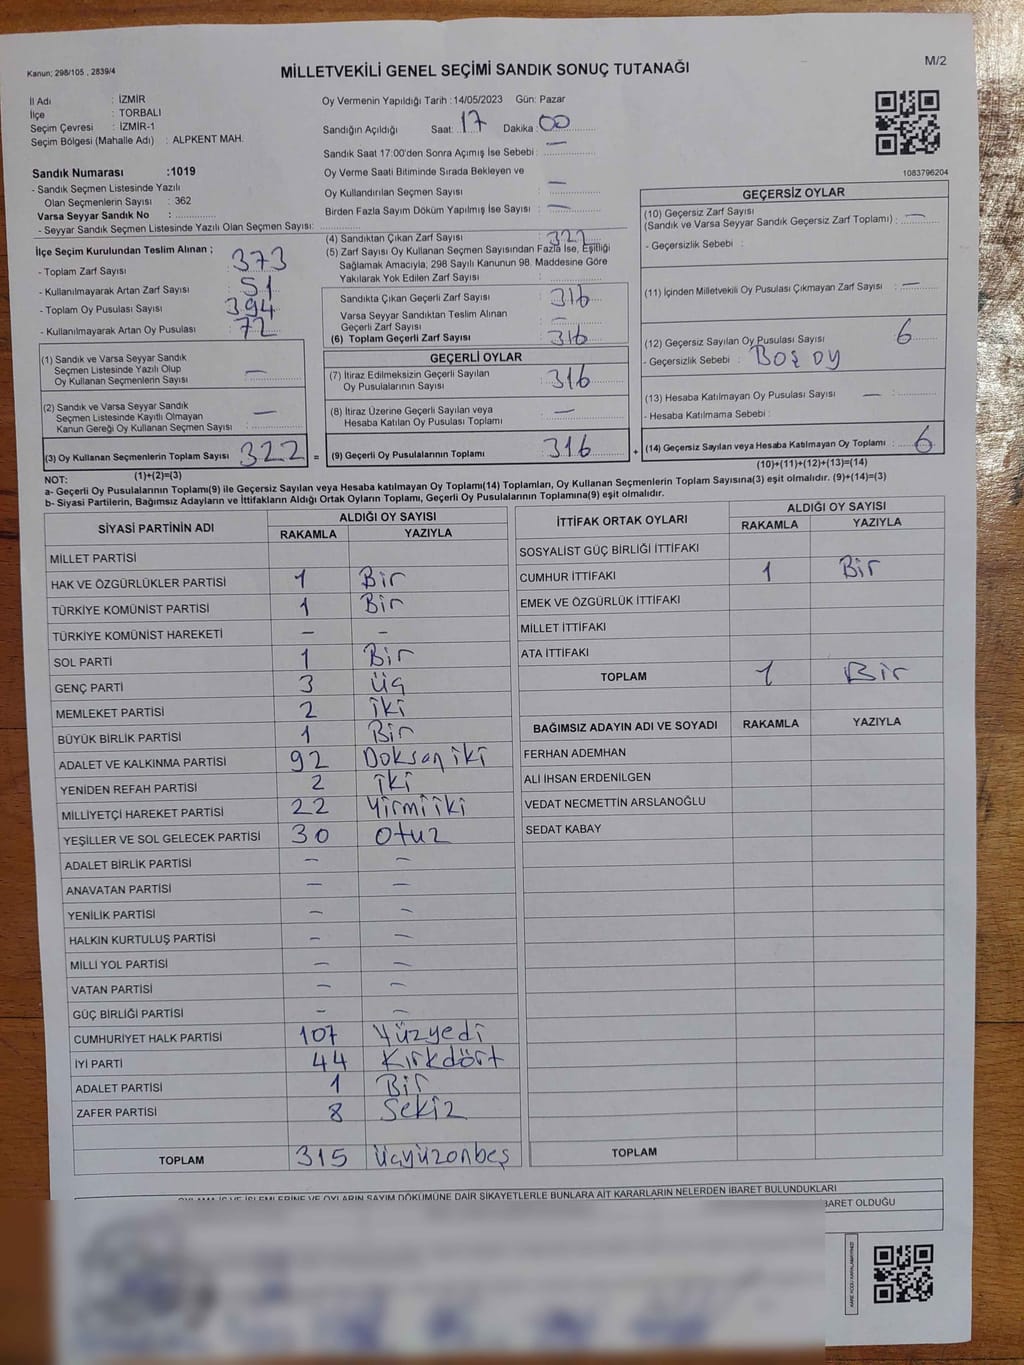 Kanun; 298/105 , 2839/4
MİLLETVEKİLİ GENEL SEÇİMİ SANDIK SONUÇ TUTANAĞI
M/2
İl Adı : İZMİR
İlçe : TORBALI
Seçim Çevresi : İZMİR-1
Seçim Bölgesi (Mahalle Adı) : ALPKENT MAH.
Oy Vermenin Yapıldığı Tarih : 14/05/2023 Gün: Pazar
Sandığın Açıldığı Saat: 17 Dakika : 00
Sandık Saat 17:00'den Sonra Açımış İse Sebebi : —
Oy Verme Saati Bitiminde Sırada Bekleyen ve
Oy Kullandırılan Seçmen Sayısı : —
Birden Fazla Sayım Döküm Yapılmış İse Sayısı : —
1083796204
Sandık Numarası :1019
- Sandık Seçmen Listesinde Yazılı
Olan Seçmenlerin Sayısı : 362
Varsa Seyyar Sandık No :
- Seyyar Sandık Seçmen Listesinde Yazılı Olan Seçmen Sayısı:
İlçe Seçim Kurulundan Teslim Alınan ;
- Toplam Zarf Sayısı : 373
- Kullanılmayarak Artan Zarf Sayısı : 51
- Toplam Oy Pusulası Sayısı : 394
- Kullanılmayarak Artan Oy Pusulası : 72
(1) Sandık ve Varsa Seyyar Sandık
Seçmen Listesinde Yazılı Olup
Oy Kullanan Seçmenlerin Sayısı : —
(2) Sandık ve Varsa Seyyar Sandık
Seçmen Listesinde Kayıtlı Olmayan
Kanun Gereği Oy Kullanan Seçmen Sayısı : —
(3) Oy Kullanan Seçmenlerin Toplam Sayısı 322 =
(1)+(2)=(3)
(4) Sandıktan Çıkan Zarf Sayısı : 322
(5) Zarf Sayısı Oy Kullanan Seçmen Sayısından Fazla İse, Eşitliği
Sağlamak Amacıyla, 298 Sayılı Kanunun 98. Maddesine Göre
Yakılarak Yok Edilen Zarf Sayısı :
Sandıkta Çıkan Geçerli Zarf Sayısı : 316
Varsa Seyyar Sandıktan Teslim Alınan
Geçerli Zarf Sayısı : —
(6) Toplam Geçerli Zarf Sayısı : 316
GEÇERLİ OYLAR
(7) İtiraz Edilmeksizin Geçerli Sayılan
Oy Pusulalarının Sayısı : 316
(8) İtiraz Üzerine Geçerli Sayılan veya
Hesaba Katılan Oy Pusulası Toplamı : —
(9) Geçerli Oy Pusulalarının Toplamı : 316 +
GEÇERSİZ OYLAR
(10) Geçersiz Zarf Sayısı
(Sandık ve Varsa Seyyar Sandık Geçersiz Zarf Toplamı) : —
- Geçersizlik Sebebi :
(11) İçinden Milletvekili Oy Pusulası Çıkmayan Zarf Sayısı : —
(12) Geçersiz Sayılan Oy Pusulası Sayısı : 6
- Geçersizlik Sebebi : Boş oy
(13) Hesaba Katılmayan Oy Pusulası Sayısı : —
- Hesaba Katılmama Sebebi :
(14) Geçersiz Sayılan veya Hesaba Katılmayan Oy Toplamı : 6
(10)+(11)+(12)+(13)=(14)
NOT:
a- Geçerli Oy Pusulalarının Toplamı(9) ile Geçersiz Sayılan veya Hesaba Katılmayan Oy Toplamı(14) Toplamları, Oy Kullanan Seçmenlerin Toplam Sayısına(3) eşit olmalıdır. (9)+(14)=(3)
b- Siyasi Partilerin, Bağımsız Adayların ve İttifakların Aldığı Ortak Oyların Toplamı, Geçerli Oy Pusulalarının Toplamına(9) eşit olmalıdır.
SİYASİ PARTİNİN ADI ALDIĞI OY SAYISI
RAKAMLA YAZIYLA
MİLLET PARTİSİ
HAK VE ÖZGÜRLÜKLER PARTİSİ 1 Bir
TÜRKİYE KOMÜNİST PARTİSİ 1 Bir
TÜRKİYE KOMÜNİST HAREKETİ — —
SOL PARTİ 1 Bir
GENÇ PARTİ 3 Üç
MEMLEKET PARTİSİ 2 İki
BÜYÜK BİRLİK PARTİSİ 1 Bir
ADALET VE KALKINMA PARTİSİ 92 Doksan iki
YENİDEN REFAH PARTİSİ 2 İki
MİLLİYETÇİ HAREKET PARTİSİ 22 Yirmi iki
YEŞİLLER VE SOL GELECEK PARTİSİ 30 Otuz
ADALET BİRLİK PARTİSİ — —
ANAVATAN PARTİSİ — —
YENİLİK PARTİSİ — —
HALKIN KURTULUŞ PARTİSİ — —
MİLLİ YOL PARTİSİ — —
VATAN PARTİSİ — —
GÜÇ BİRLİĞİ PARTİSİ — —
CUMHURİYET HALK PARTİSİ 107 Yüzyedi
İYİ PARTİ 44 Kırkdört
ADALET PARTİSİ 1 Bir
ZAFER PARTİSİ 8 Sekiz
TOPLAM 315 Üçyüzonbeş
İTTİFAK ORTAK OYLARI ALDIĞI OY SAYISI
RAKAMLA YAZIYLA
SOSYALİST GÜÇ BİRLİĞİ İTTİFAKI
CUMHUR İTTİFAKI 1 Bir
EMEK VE ÖZGÜRLÜK İTTİFAKI
MİLLET İTTİFAKI
ATA İTTİFAKI
TOPLAM 1 Bir
BAĞIMSIZ ADAYIN ADI VE SOYADI RAKAMLA YAZIYLA
FERHAN ADEMHAN
ALİ İHSAN ERDENİLGEN
VEDAT NECMETTİN ARSLANOĞLU
SEDAT KABAY
TOPLAM
OYLAMA İŞ VE İŞLEMLERİNE VE OYLARIN SAYIM DÖKÜMÜNE DAİR ŞİKAYETLERLE BUNLARA AİT KARARLARIN NELERDEN İBARET BULUNDUKLARI
İBARET OLDUĞU